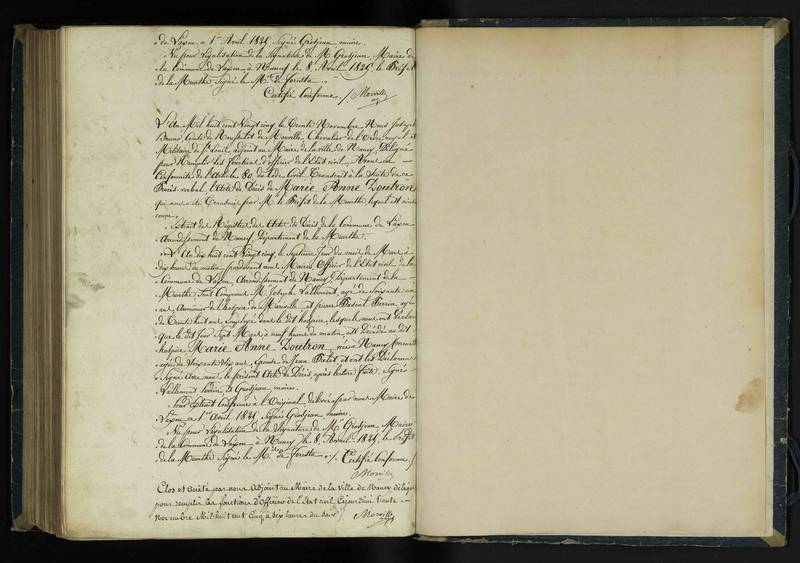 de Laxou a 1er Avril 1825, Signé Grosjean maire.
Vu pour Légalisation de la Signature de Mr Grosjean, Maire de
la Commune de Laxou, à Nancy le 8 Avril 1825, le Préfet
de la Meurthe Signé le Mis de Foresta
Certifié Conforme ./. Morville
L'An Mil huit cent Vingt cinq, le trente Novembre, Nous Joseph
Bruno, Comte de de Morville, Chevalier de l'Ordre royal et
Militaire de St Louis, adjoint au Maire de la ville de Nancy, Délégué
pour Remplir les fonctions d'officier de l'Etat civil, Avons en
Conformité de l'Article 80, du Code Civil Transcrit à la Suite de ce
Procès-verbal, l'Acte de Décès de Marie Anne Doutron
qui nous a été transmis par Mr le Préfet de la Meurthe, lequel est ainsi
conçu,
Extrait des Registres des Actes de Décès de la Commune de Laxou
Arrondissement de Nancy, Département de la Meurthe.
L'An dix huit cent Vingt cinq, le Septième Jour du mois de Mars à
dix heures du matin, pardevant nous Maire, Officier de l'Etat civil de la
Commune de Laxou, Arrondissement de Nancy, Département de la
Meurthe, sont Comparus Mr Joseph Vallement, agé de Soixante un
ans, Aumônier de l'hospice de Maréville, et pierre Perrin, agé
de trente huit ans, Employé dans le dit hospice, lesquels nous ont déclaré
que le dit Jour Sept Mars, à neuf heures du matin, est Décédée au dit
hospice, Marie Anne Doutron, née à Nancy Meurthe
agée de Soixante dix ans, Epouse de Jean et ont les Déclarans
Signé avec nous le présent Acte de Décès, après lecture faite, Signé
Vallement, Perrin et Grosjean maire.
Pour Extrait Conforme à l'Original, délivré par nous Maire de
Laxou, a 1er Avril 1825, Signé Grosjean maire.
Vu pour Légalisation de la Signature de Mr Grosjean Maire
de la Commune de Laxou, à Nancy, le 8 Avril 1825, le Préfet
de la Meurthe Signé le Mis de Foresta ./. Certifié Conforme ./.
Morville
Clos et arrêté par nous Adjoint au Maire de la Ville de Nancy délégué
pour remplir les fonctions d'Officier de l'Etat civil, Cejourd'hui trente
Novembre Mil huit cent cinq à six heures du soir ./. Morville